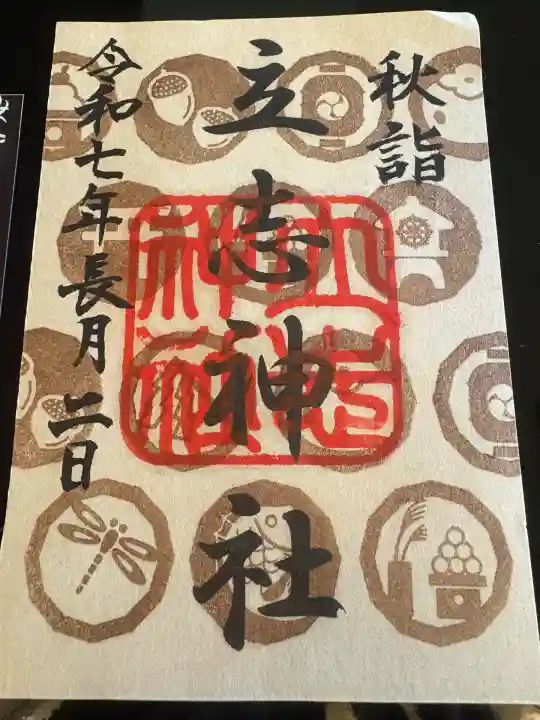 秋詣
立志神社
令和七年長月二日
立志
神社